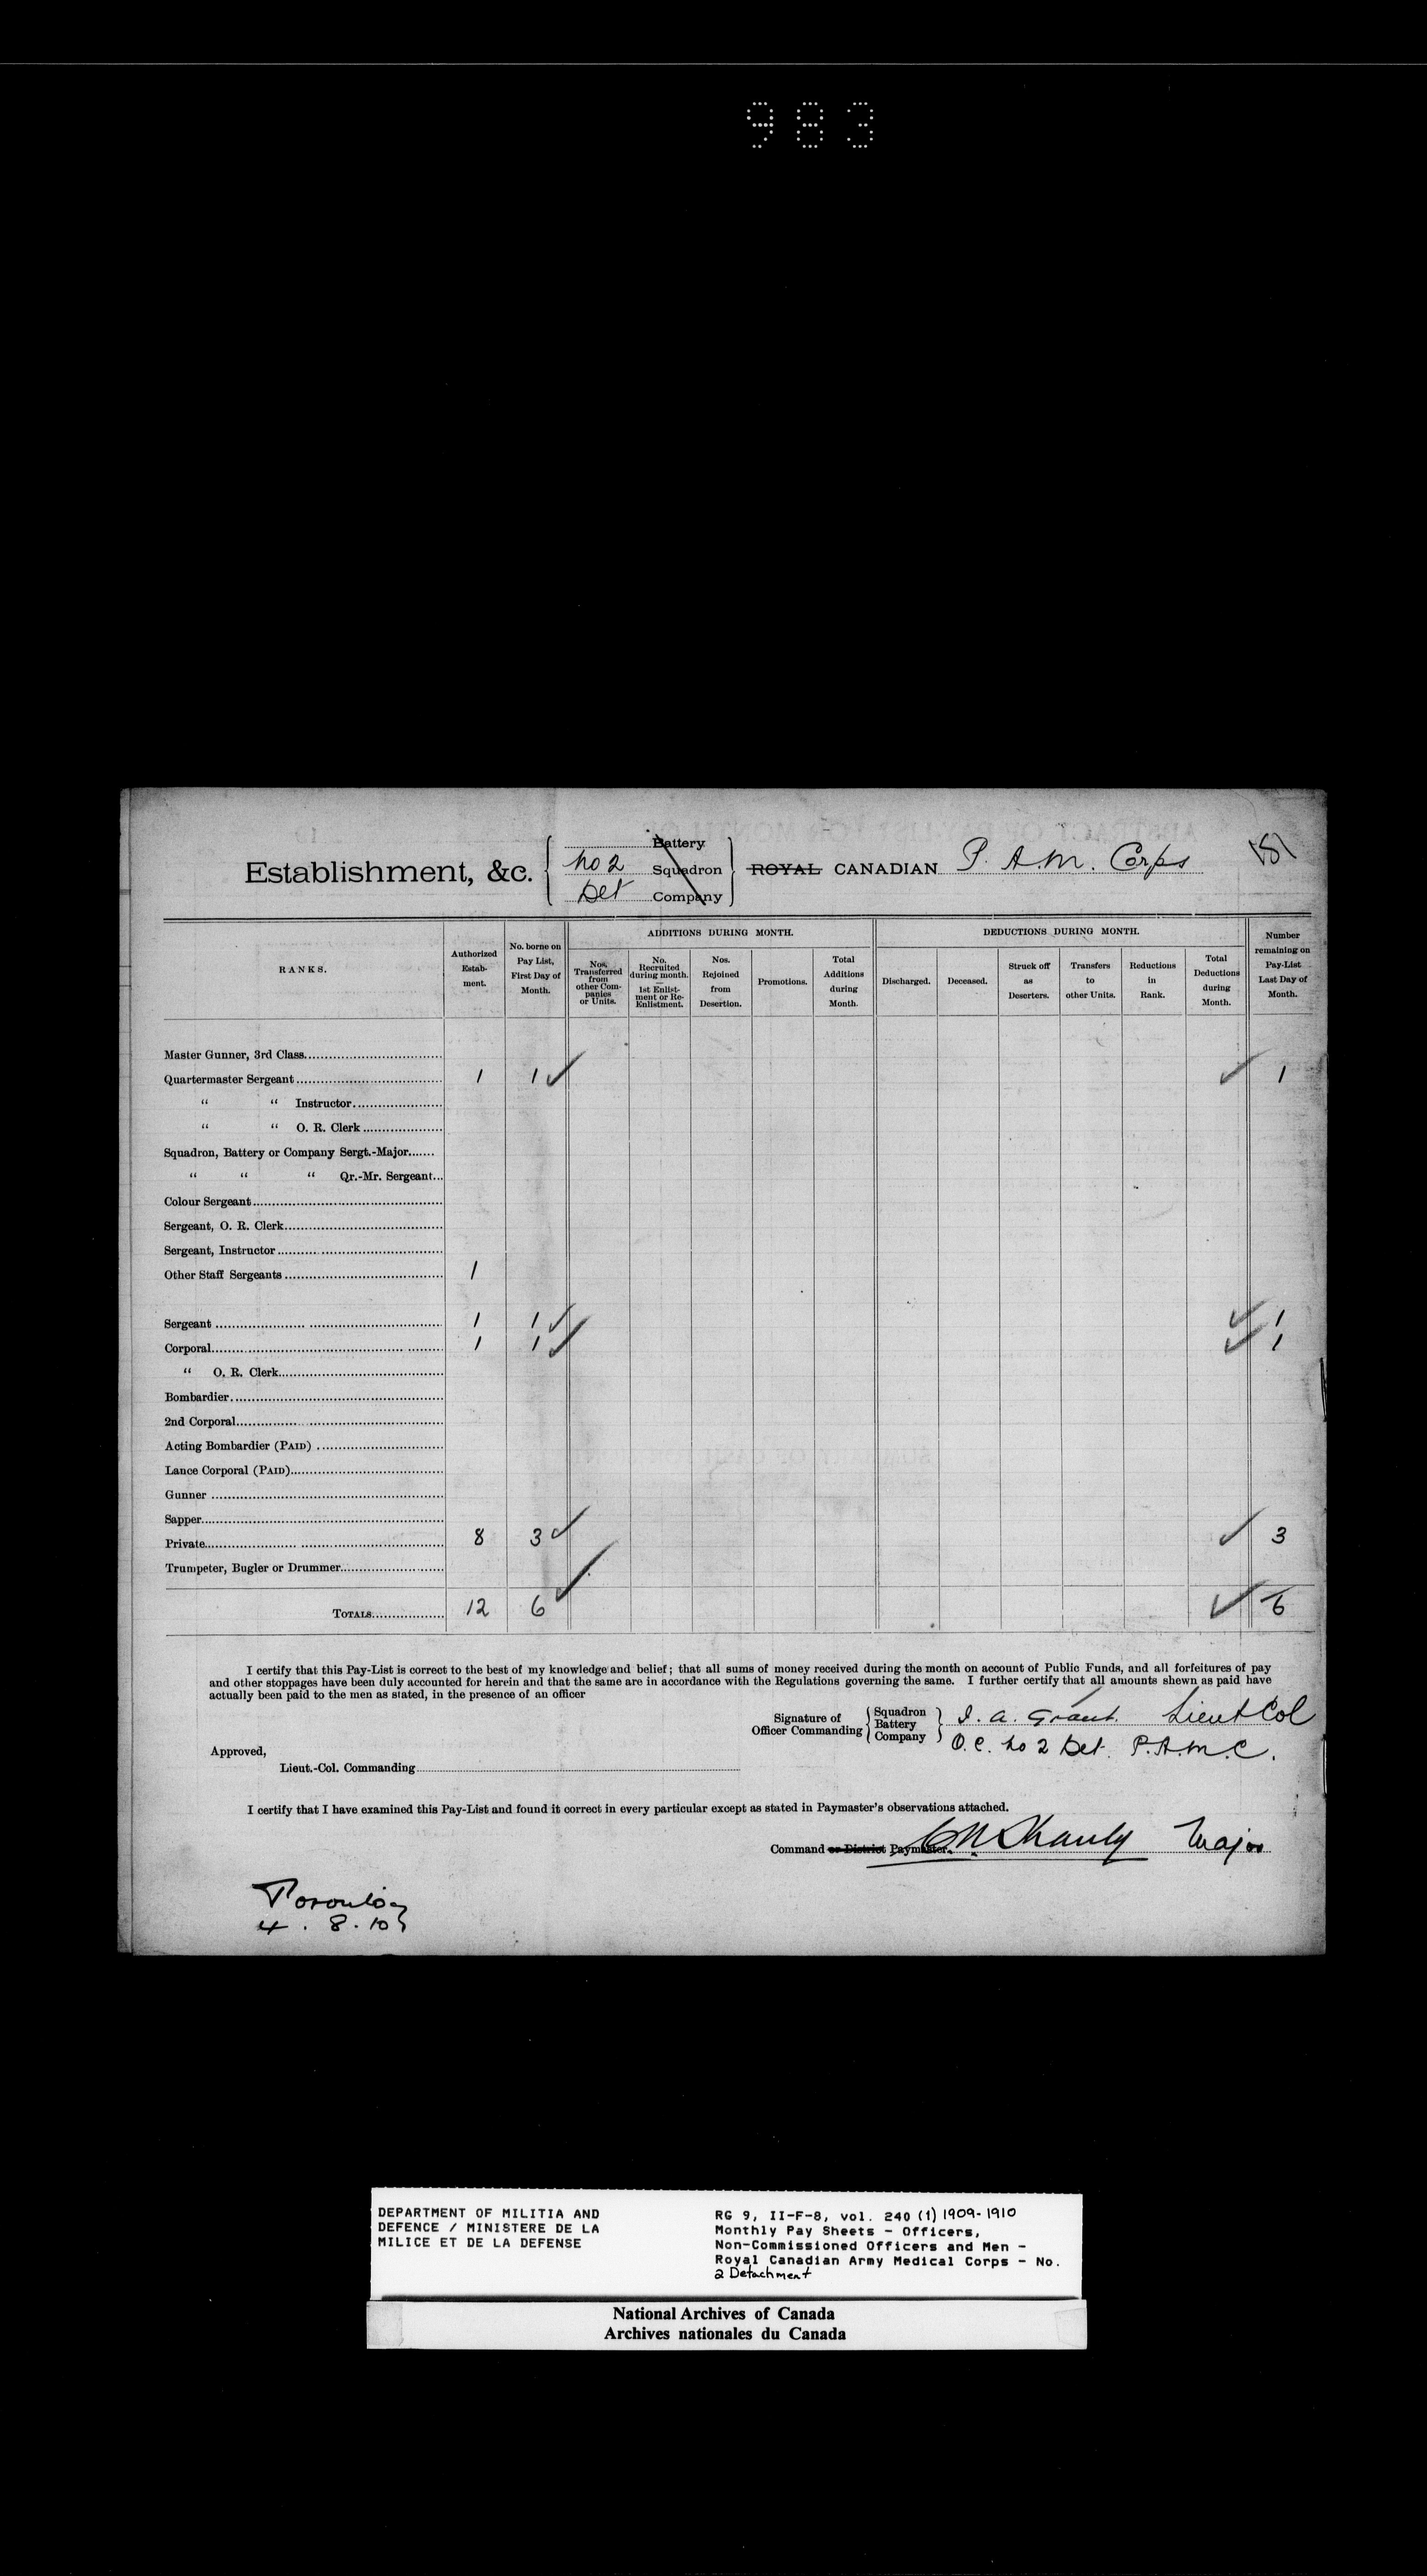 983
Establishment, &c. No 2 Det Battery Squadron Company ROYAL CANADIAN P. A.M. Corps
RANKS.
Authorized Estab-ment.
No. borne on Pay List, First Day of Month.
ADDITIONS DURING MONTH.
Nos. Transferred from other Companies or Units.
No. Recruited during month. — 1st Enlistment or Re-Enlistment.
Nos. Rejoined from Desertion.
Promotions.
Total Additions during Month.
DEDUCTIONS DURING MONTH.
Discharged.
Deceased.
Struck off as Deserters.
Transfers to other Units.
Reductions in Rank.
Total Deductions during Month.
Number remaining on Pay-List Last Day of Month.
Master Gunner, 3rd Class
Quartermaster Sergeant 1 1 ✓ ✓ 1
“ “ Instructor
“ “ O. R. Clerk
Squadron, Battery or Company Sergt.-Major
“ “ “ Qr.-Mr. Sergeant
Colour Sergeant
Sergeant, O. R. Clerk
Sergeant, Instructor
Other Staff Sergeants 1
Sergeant 1 1 ✓ ✓ 1
Corporal 1 1 ✓ ✓ 1
“ O. R. Clerk
Bombardier
2nd Corporal
Acting Bombardier (PAID)
Lance Corporal (PAID)
Gunner
Sapper
Private 8 3 ✓ ✓ 3
Trumpeter, Bugler or Drummer
TOTALS 12 6 ✓ ✓ 6
I certify that this Pay-List is correct to the best of my knowledge and belief; that all sums of money received during the month on account of Public Funds, and all forfeitures of pay
and other stoppages have been duly accounted for herein and that the same are in accordance with the Regulations governing the same. I further certify that all amounts shewn as paid have
actually been paid to the men as stated, in the presence of an officer
Signature of Officer Commanding Squadron Battery Company J. A. Grant. Lieut Col
O.C. No 2 Det. P.A.M.C.
Approved,
Lieut.-Col. Commanding
I certify that I have examined this Pay-List and found it correct in every particular except as stated in Paymaster's observations attached.
Command or District Paymaster. Major
Toronto
4.8.10
DEPARTMENT OF MILITIA AND
DEFENCE / MINISTERE DE LA
MILICE ET DE LA DEFENSE
RG 9, II-F-8, vol. 240 (1) 1909-1910
Monthly Pay Sheets - Officers,
Non-Commissioned Officers and Men -
Royal Canadian Army Medical Corps - No.
2 Detachment
National Archives of Canada
Archives nationales du Canada